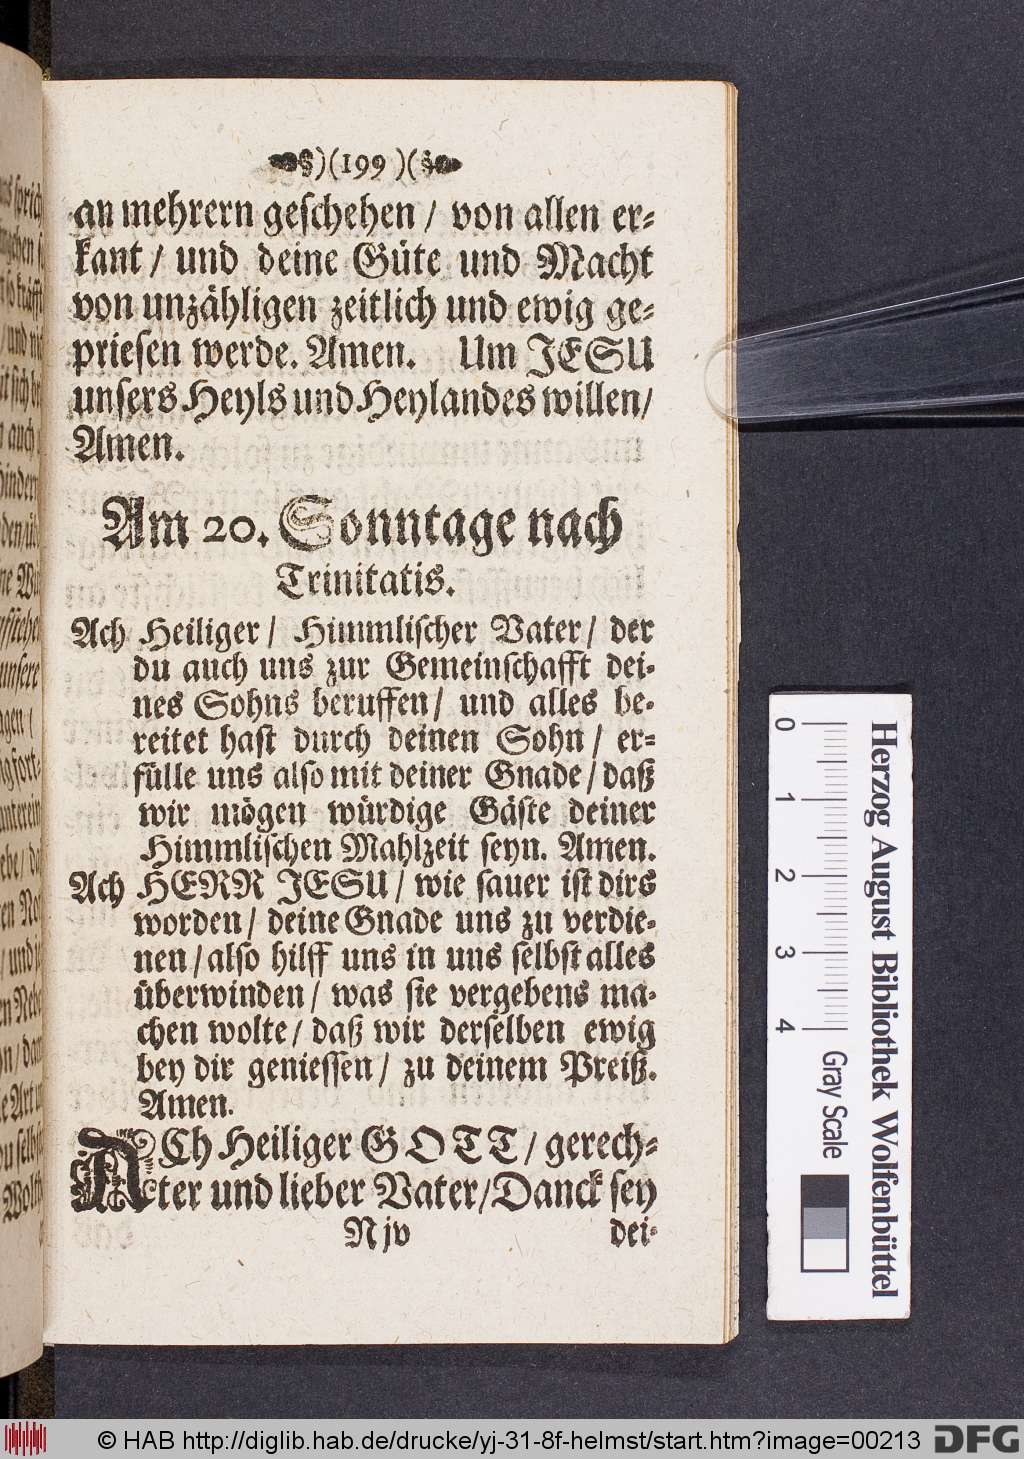 )( 199 )(
an mehrern geschehen / von allen er⸗
kant / und deine Güte und Macht
von unzähligen zeitlich und ewig ge⸗
priesen werde. Amen. Um JESU
unsers Heyls und Heylandes willen /
Amen.
Am 20. Sonntage nach
Trinitatis.
Ach Heiliger / Himmlischer Vater / der
du auch uns zur Gemeinschafft dei⸗
nes Sohns beruffen / und alles be⸗
reitet hast durch deinen Sohn / er⸗
fülle uns also mit deiner Gnade / daß
wir mögen würdige Gäste deiner
Himmlischen Mahlzeit seyn. Amen.
Ach HERR JESU / wie sauer ist dirs
worden / deine Gnade uns zu verdie⸗
nen / also hilff uns in uns selbst alles
überwinden / was sie vergebens ma⸗
chen wolte / daß wir derselben ewig
bey dir geniessen / zu deinem Preiß.
Amen.
ACh Heiliger GOTT / gerech⸗
ter und lieber Vater / Danck sey
N jv dei⸗
Herzog August Bibliothek Wolfenbüttel
0 1 2 3 4 Gray Scale
© HAB http://diglib.hab.de/drucke/yj-31-8f-helmst/start.htm?image=00213
DFG